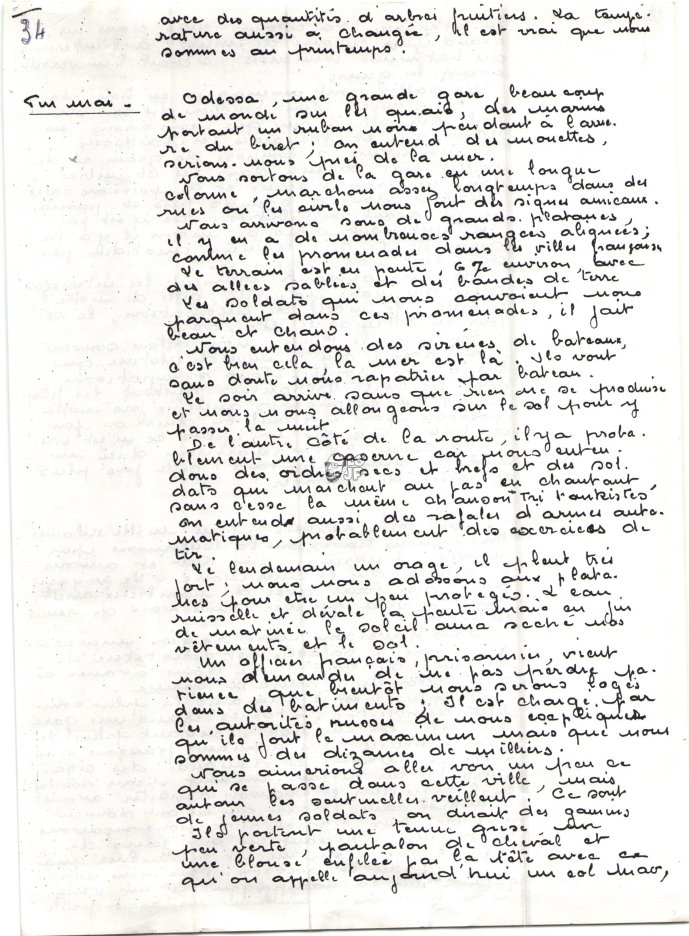 34
avec des quantités d'arbres fruitiers. La tempé-
rature aussi a changée, il est vrai que nous
sommes au printemps.
Fin mai -
Odessa, une grande gare, beaucoup
de monde sur les quais, des marins
portant un ruban noir pendant à l'arriè-
re du béret ; on entend des mouettes,
serions-nous près de la mer.
Nous sortons de la gare en une longue
colonne, marchons assez longtemps dans des
rues où les civils nous font des signes amicaux.
Nous arrivons sous de grands platanes,
il y en a de nombreuses rangées alignées ;
comme les promenades dans les villes françaises
Le terrain est en pente, 6 % environ, avec
des allées sablées et des bandes de terre
Les soldats qui nous convoient nous
parquent dans ces promenades, il fait
beau et chaud.
Nous entendons des sirènes de bateaux,
c'est bien cela, la mer est là. Ils vont
sans doute nous rapatrier par bateau.
Le soir arrive sans que rien ne se produise
et nous nous allongeons sur le sol pour y
passer la nuit.
De l'autre côté de la route, il y a proba-
blement une caserne car nous enten-
dons des ordres secs et brefs et des sol-
dats qui marchent au pas en chantant
sans cesse la même chanson "Tri tankistes",
on entend aussi des rafales d'armes auto-
matiques, probablement des exercices de
tir.
Le lendemain un orage, il pleut très
fort ; nous nous adossons aux plata-
nes pour être un peu protégés. L'eau
ruisselle et dévale la pente mais en fin
de matinée le soleil aura séché nos
vêtements et le sol.
Un officier français, prisonnier, vient
nous demander de ne pas perdre pa-
tience que bientôt nous serons logés
dans des batiments ; Il est chargé par
les autorités russes de nous expliquer
qu'ils font le maximum mais que nous
sommes des dizaines de milliers.
Nous aimerions aller voir un peu ce
qui se passe dans cette ville, mais
autour les sentinelles veillent. Ce sont
de jeunes soldats on dirait des gamins
Ils portent une tenue grise, un
peu verte, pantalon de cheval et
une blouse enfilée par la tête avec ce
qu'on appelle aujourd'hui un col Mao,